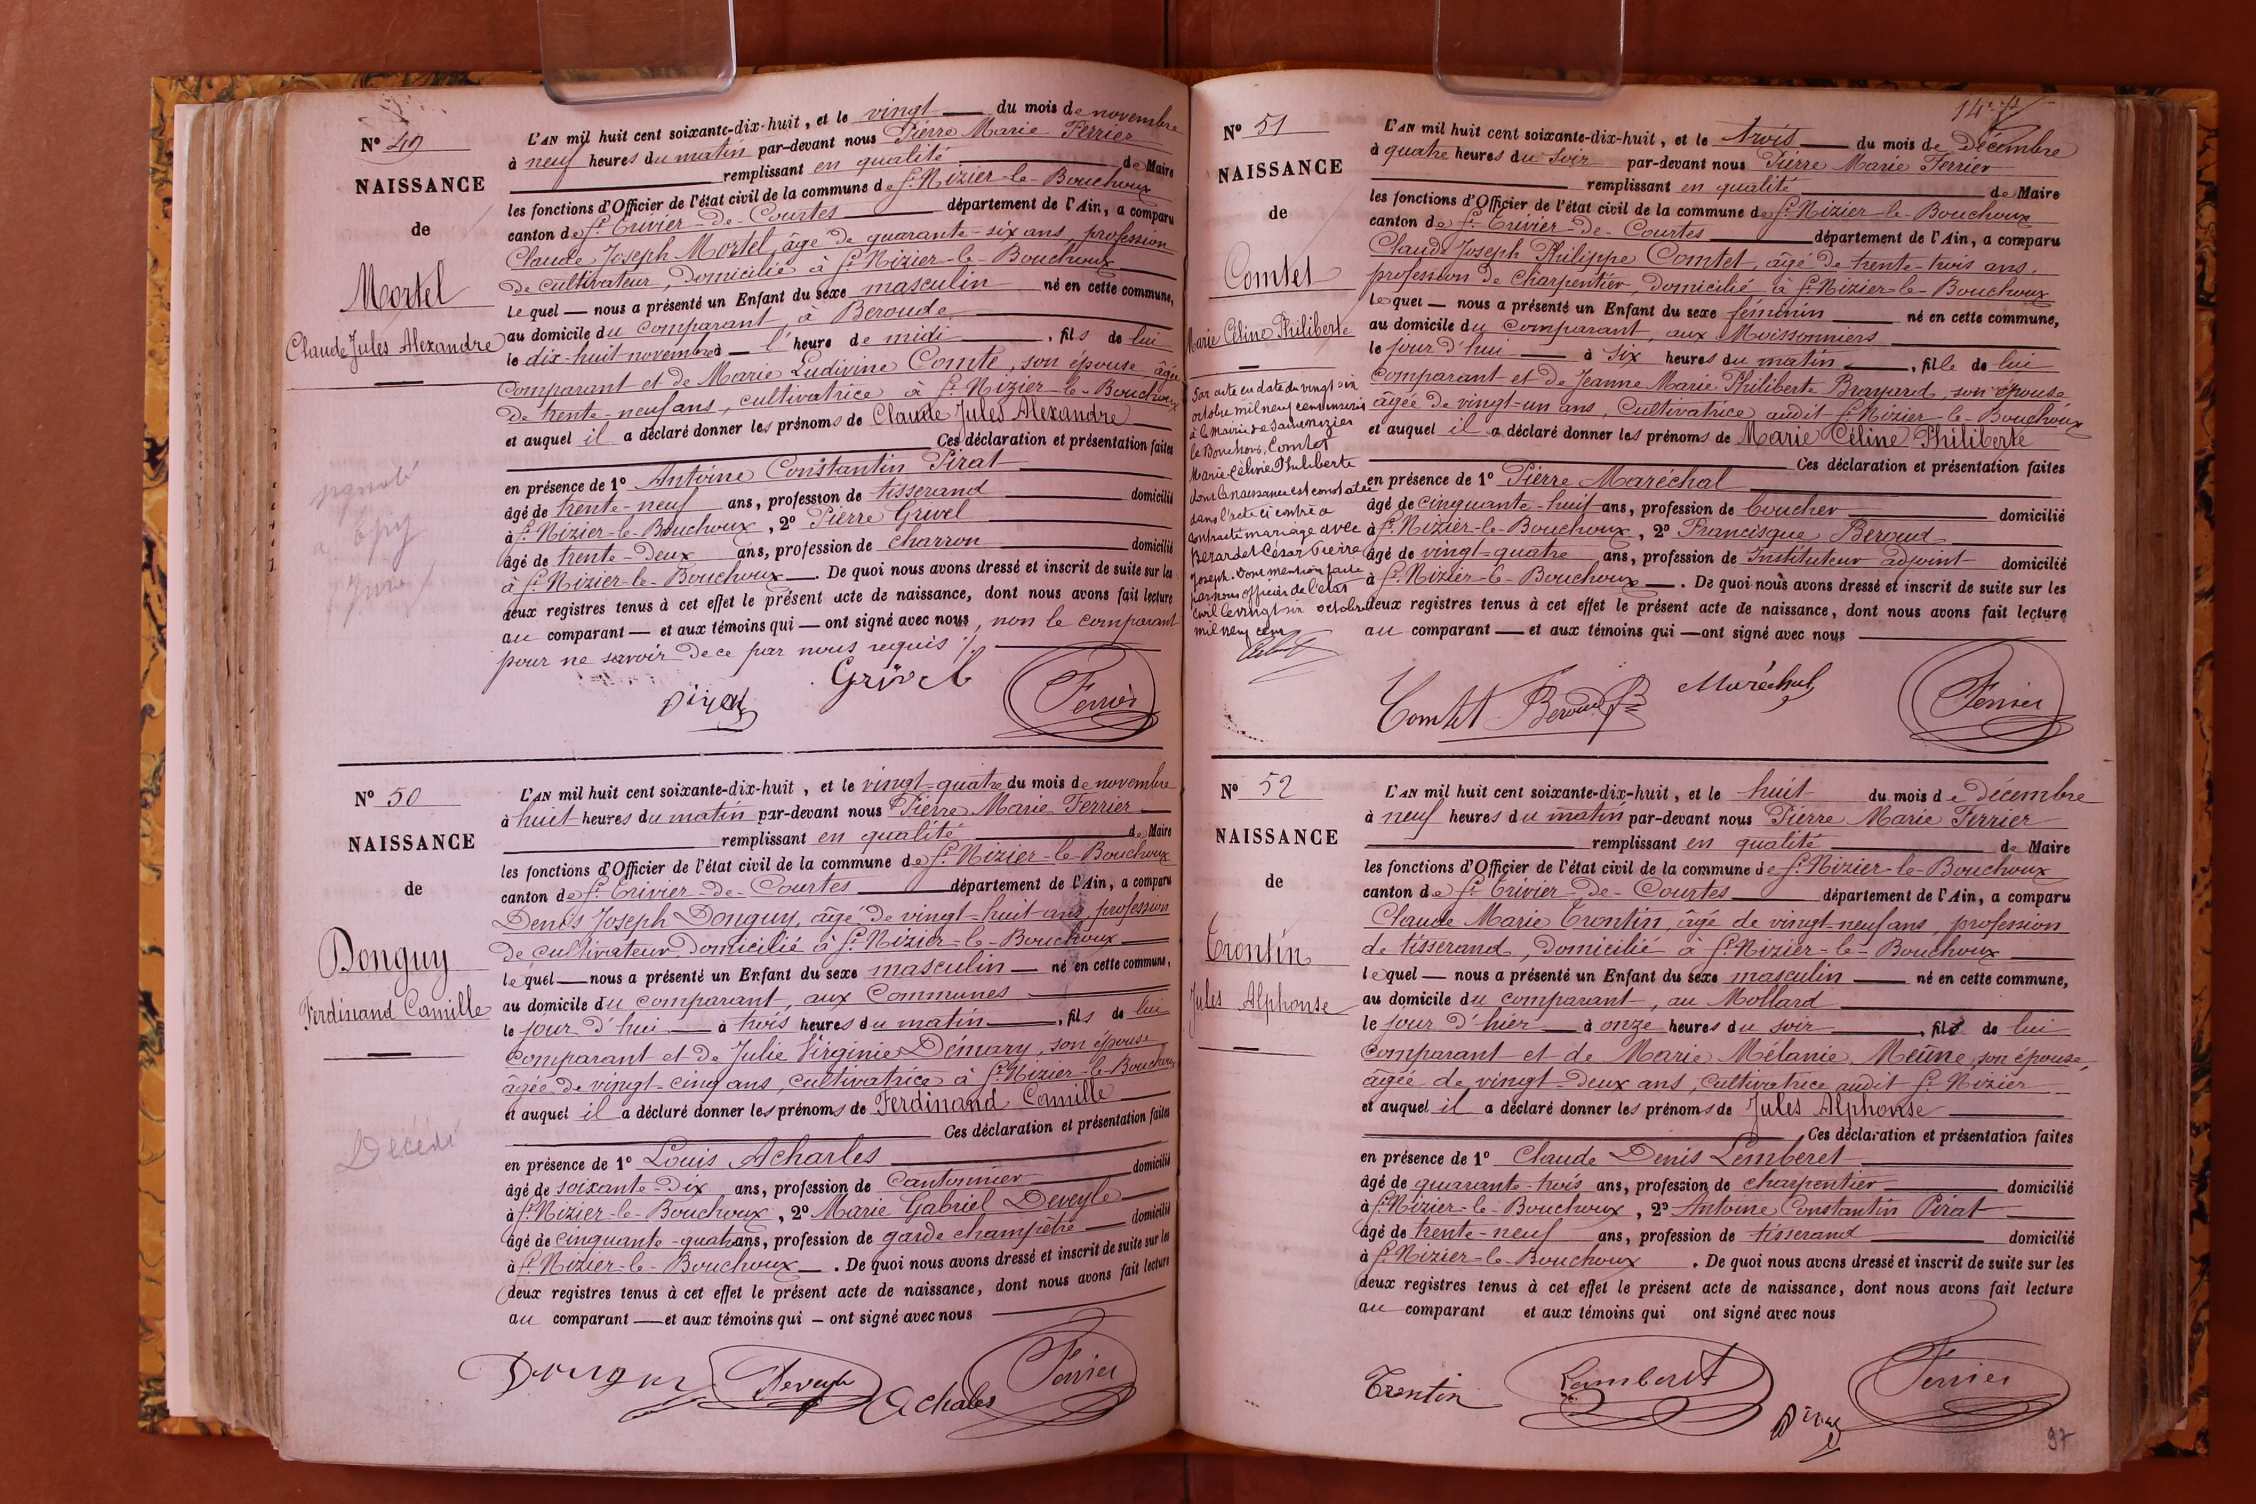 N° 49
NAISSANCE
de
Mortel
Claude Jules Alexandre
L'AN mil huit cent soixante-dix-huit, et le vingt du mois de novembre
à neuf heures du matin par-devant nous Pierre Marie Ferrier
remplissant en qualité de Maire
les fonctions d'Officier de l'état civil de la commune de St Nizier-le-Bouchoux
canton de St Trivier-de-Courtes département de l'Ain, a comparu
Claude Joseph Mortel, âgé de quarante-six ans, profession
de cultivateur, domicilié à St Nizier-le-Bouchoux
le quel — nous a présenté un Enfant du sexe masculin né en cette commune,
au domicile du comparant, à Beroude
le dix-huit novembre à l'heure de midi, fils de lui
comparant et de Marie Ludivine Comte, son épouse âgée
de trente-neuf ans, cultivatrice à St Nizier-le-Bouchoux
et auquel il a déclaré donner les prénoms de Claude Jules Alexandre
Ces déclaration et présentation faites
en présence de 1° Antoine Constantin Pirat
âgé de trente-neuf ans, profession de tisserand domicilié
à St Nizier-le-Bouchoux, 2° Pierre Grivel
âgé de trente-deux ans, profession de charron domicilié
à St Nizier-le-Bouchoux. De quoi nous avons dressé et inscrit de suite sur les
deux registres tenus à cet effet le présent acte de naissance, dont nous avons fait lecture
au comparant — et aux témoins qui — ont signé avec nous, non le comparant
pour ne savoir de ce par nous requis
Pirat Grivel Ferrier
N° 50
NAISSANCE
de
Donguy
Ferdinand Camille
Décédé
L'AN mil huit cent soixante-dix-huit, et le vingt-quatre du mois de novembre
à huit heures du matin par-devant nous Pierre Marie Ferrier
remplissant en qualité de Maire
les fonctions d'Officier de l'état civil de la commune de St Nizier-le-Bouchoux
canton de St Trivier-de-Courtes département de l'Ain, a comparu
Denis Joseph Donguy, âgé de vingt-huit ans, profession
de cultivateur, domicilié à St Nizier-le-Bouchoux
le quel — nous a présenté un Enfant du sexe masculin — né en cette commune,
au domicile du comparant, aux Communes
le jour d'hui — à trois heures du matin, fils de lui
comparant et de Julie Virginie Démary, son épouse
âgée de vingt-cinq ans, cultivatrice à St Nizier-le-Bouchoux
et auquel il a déclaré donner les prénoms de Ferdinand Camille
Ces déclaration et présentation faites
en présence de 1° Louis Acharles
âgé de soixante-dix ans, profession de Cantonnier domicilié
à St Nizier-le-Bouchoux, 2° Marie Gabriel Deveyle
âgé de cinquante-quatre ans, profession de garde champêtre domicilié
à St Nizier-le-Bouchoux. De quoi nous avons dressé et inscrit de suite sur les
deux registres tenus à cet effet le présent acte de naissance, dont nous avons fait lecture
au comparant — et aux témoins qui — ont signé avec nous
Donguy Deveyle Achales Ferrier
N° 51
NAISSANCE
de
Comtet
Marie Céline Philiberte
Par acte en date du vingt six
octobre mil neuf cent
à la Mairie de Saint Nizier
le Bouchoux, Comtet
Marie Céline Philiberte
dont la naissance est constatée
dans l'acte ci contre a
contracté mariage avec
Berardet César Pierre
Joseph. Dont mention faite
par nous officier de l'état
civil le vingt six octobre
mil neuf cent
L'AN mil huit cent soixante-dix-huit, et le trois du mois de Décembre
à quatre heures du soir par-devant nous Pierre Marie Ferrier
remplissant en qualité de Maire
les fonctions d'Officier de l'état civil de la commune de St Nizier-le-Bouchoux
canton de St Trivier-de-Courtes département de l'Ain, a comparu
Claude Joseph Philippe Comtet, âgé de trente-trois ans,
profession de charpentier, domicilié à St Nizier-le-Bouchoux
le quel — nous a présenté un Enfant du sexe féminin né en cette commune,
au domicile du comparant, aux Moissonniers
le jour d'hui — à six heures du matin, fille de lui
comparant et de Jeanne Marie Philiberte Brayard, son épouse
âgée de vingt-un ans, Cultivatrice audit St Nizier-le-Bouchoux
et auquel il a déclaré donner les prénoms de Marie Céline Philiberte
Ces déclaration et présentation faites
en présence de 1° Pierre Maréchal
âgé de cinquante-huit ans, profession de boucher domicilié
à St Nizier-le-Bouchoux, 2° Francisque Beroud
âgé de vingt-quatre ans, profession de Instituteur adjoint domicilié
à St Nizier-le-Bouchoux. De quoi nous avons dressé et inscrit de suite sur les
deux registres tenus à cet effet le présent acte de naissance, dont nous avons fait lecture
au comparant — et aux témoins qui — ont signé avec nous
Comtet Beroud Maréchal Ferrier
N° 52
NAISSANCE
de
Trontin
Jules Alphonse
L'AN mil huit cent soixante-dix-huit, et le huit du mois de Décembre
à neuf heures du matin par-devant nous Pierre Marie Ferrier
remplissant en qualité de Maire
les fonctions d'Officier de l'état civil de la commune de St Nizier-le-Bouchoux
canton de St Trivier-de-Courtes département de l'Ain, a comparu
Claude Marie Trontin, âgé de vingt-neuf ans, profession
de tisserand, domicilié à St Nizier-le-Bouchoux
le quel — nous a présenté un Enfant du sexe masculin né en cette commune,
au domicile du comparant, au Mollard
le jour d'hier — à onze heures du soir, fils de lui
comparant et de Marie Mélanie Meûne, son épouse,
âgée de vingt-deux ans, cultivatrice audit St Nizier
et auquel il a déclaré donner les prénoms de Jules Alphonse
Ces déclaration et présentation faites
en présence de 1° Claude Denis Lemberet
âgé de quarante-trois ans, profession de charpentier domicilié
à St Nizier-le-Bouchoux, 2° Antoine Constantin Pirat
âgé de trente-neuf ans, profession de tisserand domicilié
à St Nizier-le-Bouchoux. De quoi nous avons dressé et inscrit de suite sur les
deux registres tenus à cet effet le présent acte de naissance, dont nous avons fait lecture
au comparant et aux témoins qui ont signé avec nous
Trontin Lamberet Pirat Ferrier
97